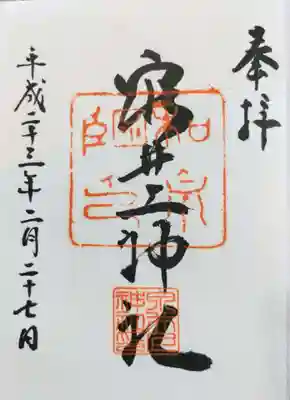 奉拝
井三神社
平成二十三年二月二十七日